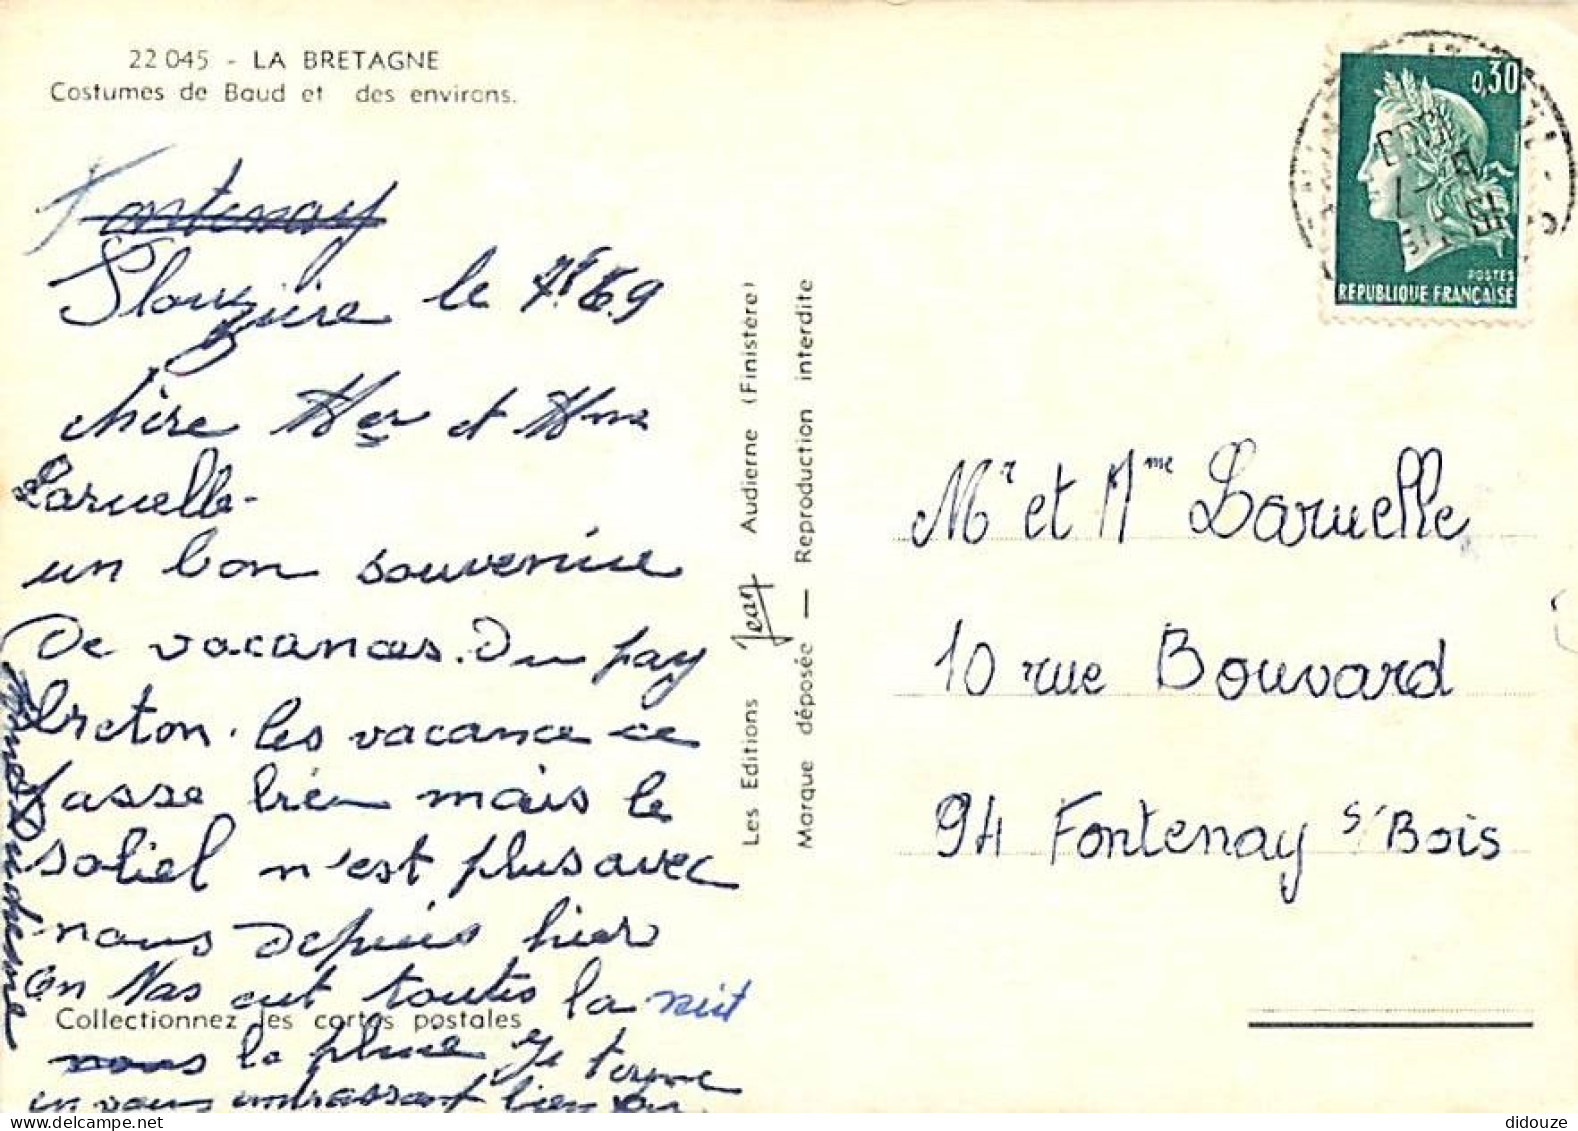 22 045 - LA BRETAGNE
Costumes de Baud et des environs.
Fontenay
le 69
chère Mer et Mme
Laruelle-
un bon souvenire
De vacances. Du pay
breton. les vacance ce
passe bien mais le
soliel n'est plus avec
nous depuis hier
on Nas eut toutes la nuit
Collectionnez les cartes postales
nous la pluie Je terme
en vous embrassant bien
Les Editions Jean Audierne (Finistère)
Marque déposée — Reproduction interdite
0,30
POSTES
REPUBLIQUE FRANÇAISE
Mr et Mme Laruelle
10 rue Bouvard
94 Fontenay s/Bois
didouze